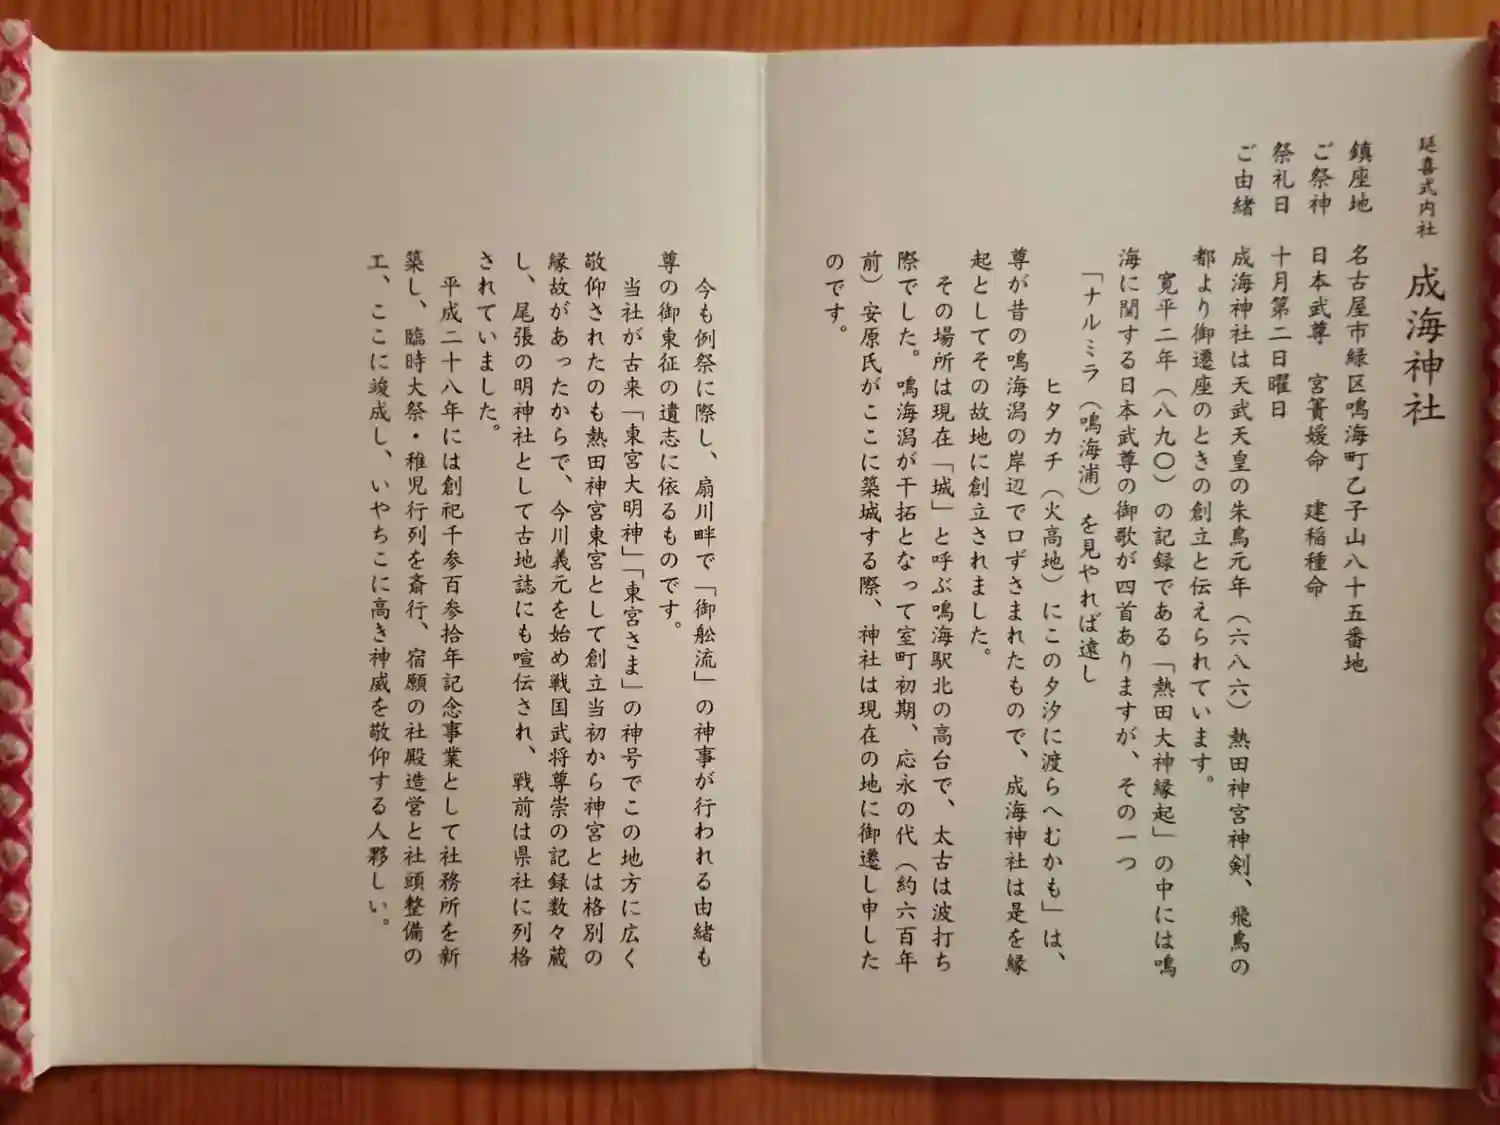 延喜式内社 成海神社
鎮座地 名古屋市緑区鳴海町乙子山八十五番地
ご祭神 日本武尊 宮簀媛命 建稲種命
祭礼日 十月第二日曜日
ご由緒 成海神社は天武天皇の朱鳥元年（六八六）熱田神宮神剣、飛鳥の
都より御遷座のときの創立と伝えられています。
寛平二年（八九〇）の記録である「熱田大神縁起」の中には鳴
海に関する日本武尊の御歌が四首ありますが、その一つ
「ナルミラ（鳴海浦）を見やれば遠し
ヒタカチ（火高地）にこの夕汐に渡らへむかも」は、
尊が昔の鳴海潟の岸辺で口ずさまれたもので、成海神社は是を縁
起としてその故地に創立されました。
その場所は現在「城」と呼ぶ鳴海駅北の高台で、太古は波打ち
際でした。鳴海潟が干拓となって室町初期、応永の代（約六百年
前）安原氏がここに築城する際、神社は現在の地に御遷し申した
のです。
今も例祭に際し、扇川畔で「御舩流」の神事が行われる由緒も
尊の御東征の遺志に依るものです。
当社が古来「東宮大明神」「東宮さま」の神号でこの地方に広く
敬仰されたのも熱田神宮東宮として創立当初から神宮とは格別の
縁故があったからで、今川義元を始め戦国武将尊崇の記録数々蔵
し、尾張の明神社として古地誌にも喧伝され、戦前は県社に列格
されていました。
平成二十八年には創祀千参百参拾年記念事業として社務所を新
築し、臨時大祭・稚児行列を斎行、宿願の社殿造営と社頭整備の
工、ここに竣成し、いやちこに高き神威を敬仰する人夥しい。